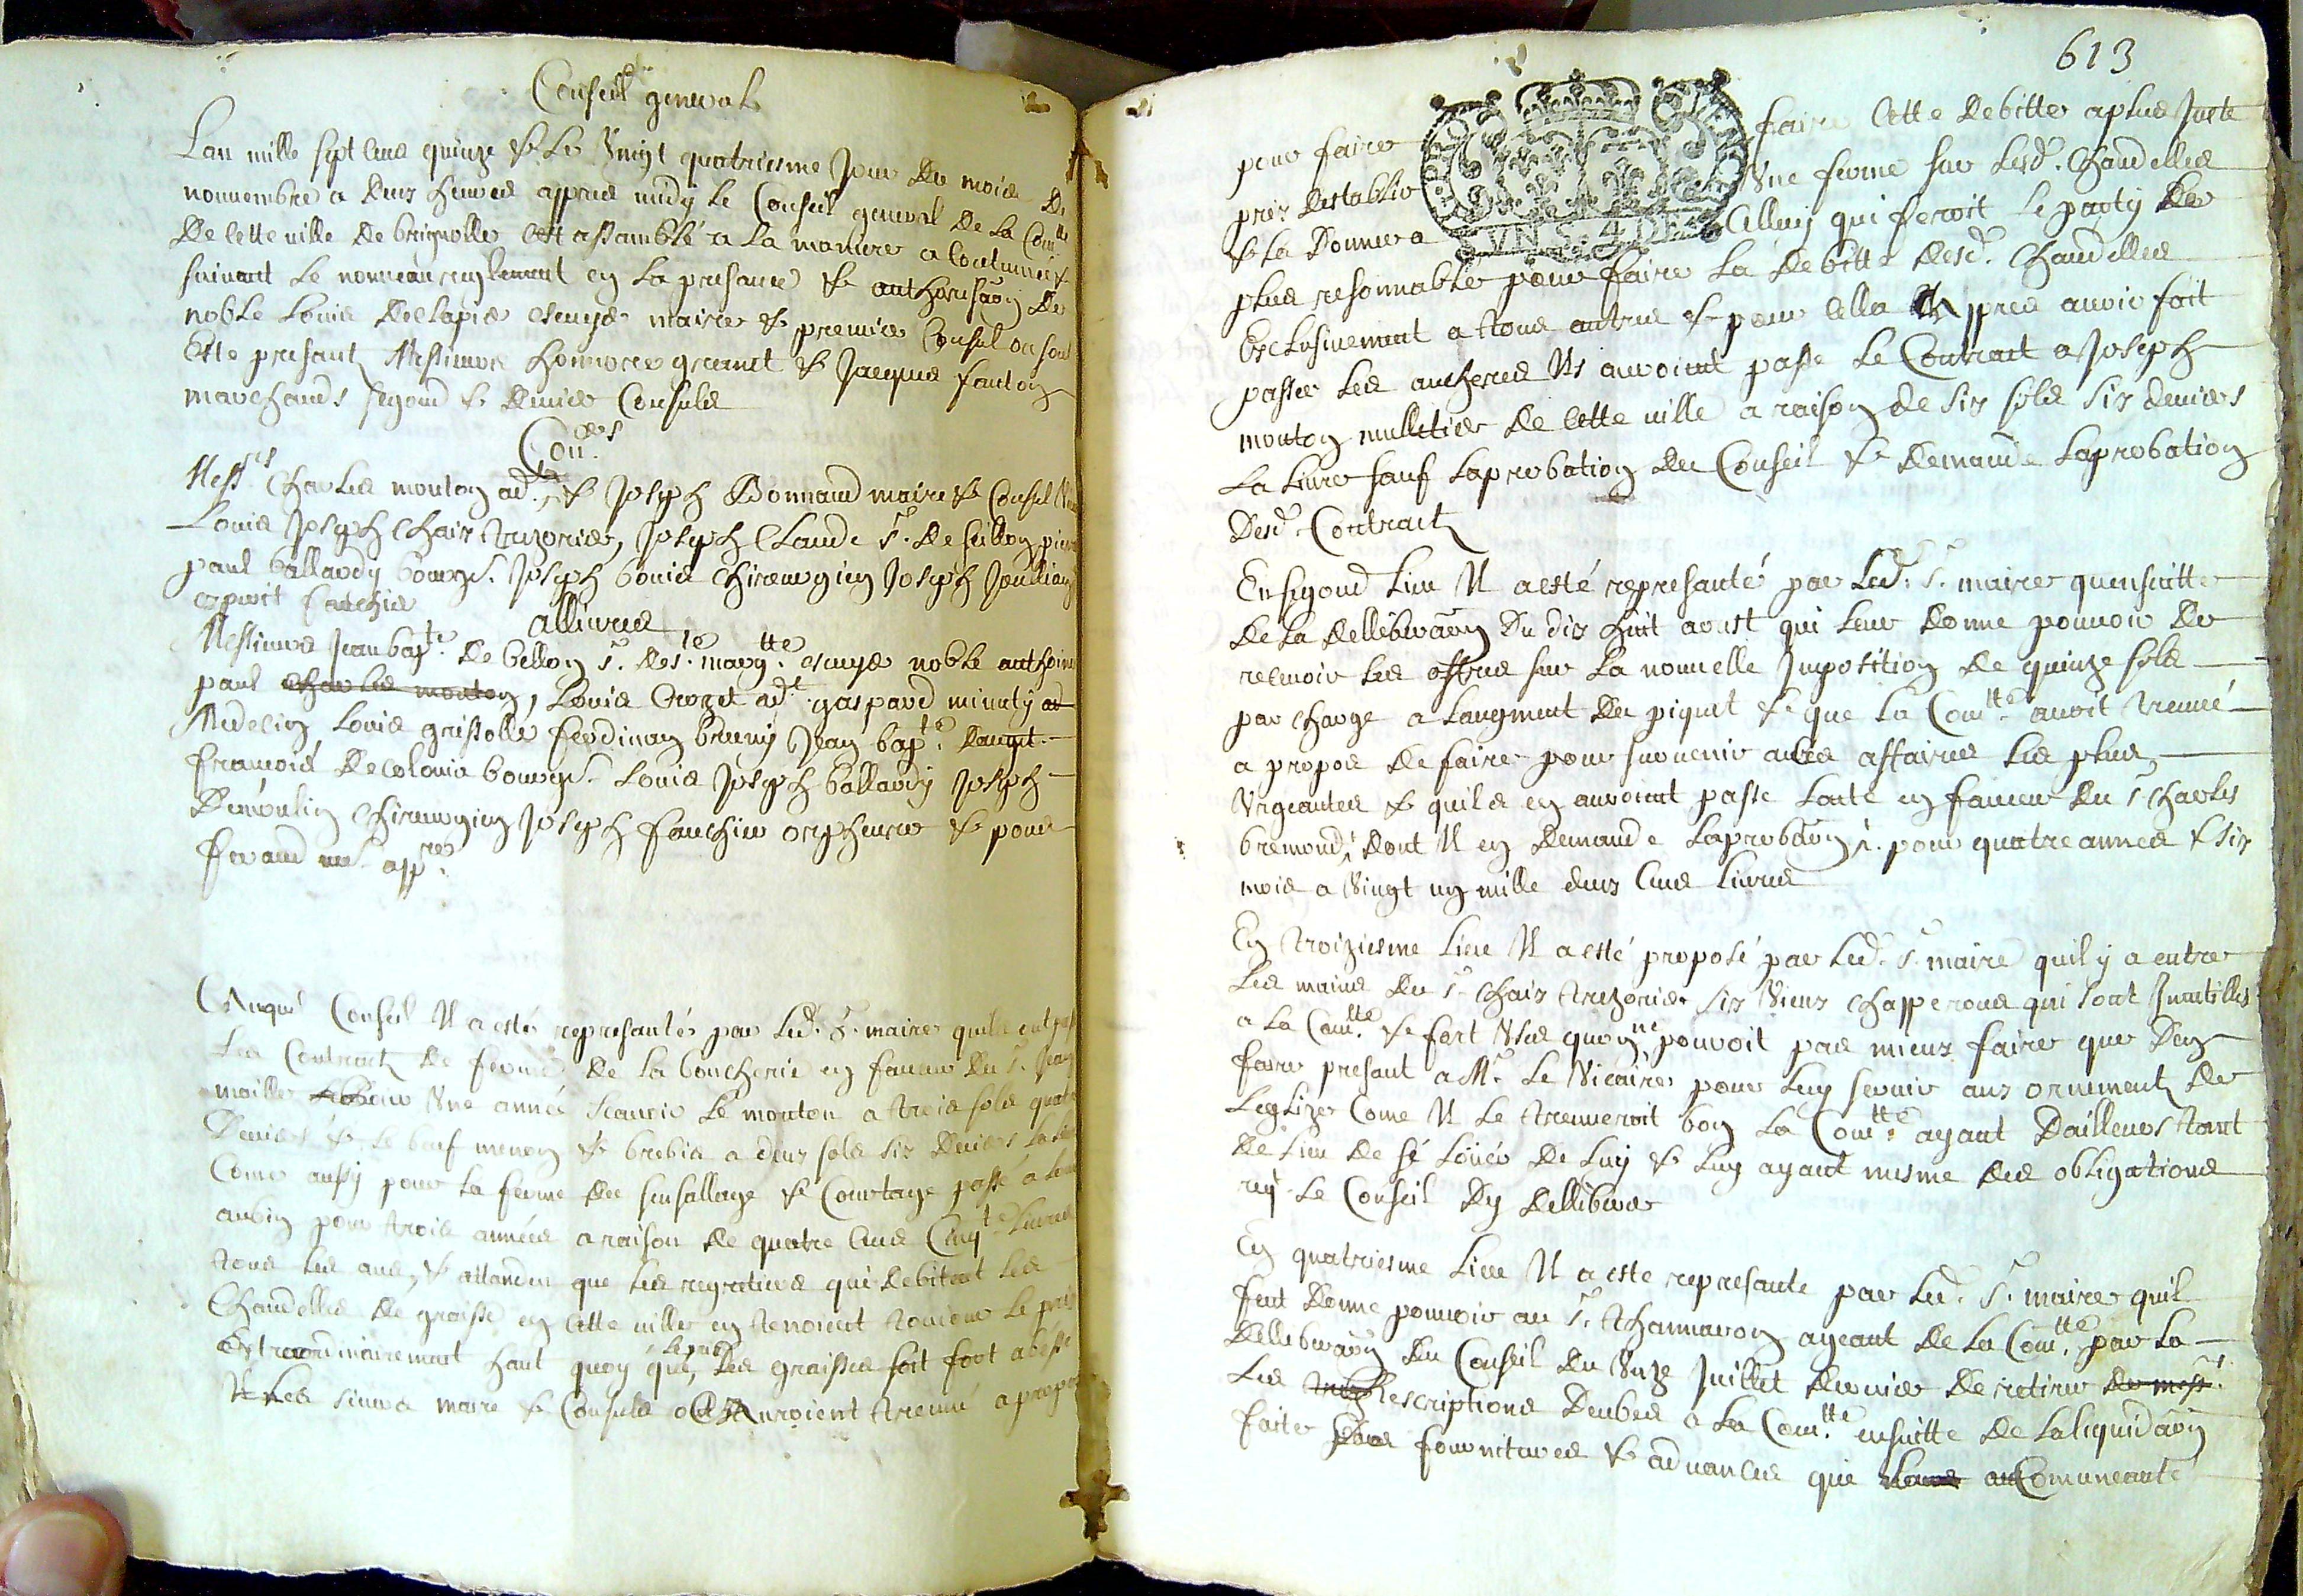 Conseil general
Lan mille sept cens quinze & le vingt quatriesme jour du mois de
nouvembre a deux heures appres midy le Conseil general de la Comtté
de cette ville de brignolle cest assamblé a la maniere a coutumée &
suivant le nouveau reglement en la presance & authorisaôn de
noble Louis declapie escuyer maire & premier Consul on son
Este presants Messieurs honnores & Jacques fanton
marchands segond & dernier Consuls
Coners
Messrs Charles mouton adt, & Joseph Bonnaud maire & Consul
Louis Joseph Chaix trezorier, Joseph Claude sr. de seillon pierre
paul ballardy bourgs. Joseph bouis chirurgien Joseph Jullian
esprit fauchier
allivrés
Messieurs Jean bapte. de bellon sr. de ste margtte. escuyer noble anthoine
paul charles mouton, Louis Crozet adt gaspard minuty
Medecin Louis grissolle ferdinan bruny Jean bapte. dauget
francois decolonia bourgs. Louis Joseph ballardy Joseph
Demoulin chirurgien Joseph fauchier orpheuvre & pons
feraud me. appre.
Auquel Conseil Il a esté representé par led. sr. maire quils ont passé
Les Contracts de ferme de la boucherie en faveur du sr. Jean
maille une année scavoir le mouton a trois sols quatre
Deniers & le beuf menon & brebis a deux sols six deniers la livre
Come aussy pour la ferme du sensallage & Courtage passé a
aubin pour trois années a raison de quatre cens cinqte livres
tous les ans, & attandeu que les regratiers qui debitent les
Chandelles de graisse en cette ville en tenoient tousiour le prix
extraordinairement haut quoy que, le prix des graisses soit fort abessé
Les sieurs maire & Consuls auroient treuvé a propos
613
pour faire faire cette debitte a plus juste
prix destablir Une ferme sur lesd. Chandelles
& la donner a Celluy qui feroit le party le
VN S. 4 DE
plus resonnable pour faire la debitte desd. Chandelles
Exclusivement a tous autres & pour cella Appres avoir fait
passer les encheres Ils auroient passé le Contract a Joseph
mouton mulletier de cette ville a raison de six sols six deniers
La livre sauf Laprobation du Conseil & demande Laprobation
Desd. Contracts
En segond lieu Il a esté represanté par led. sr. maire quensuitte
de la delliberaôn du dix huit aoust qui leur donne pouvoir de
recevoir les offres sur la nouvelle Imposition de quinze sols
par charge a laugment du piquet & que la Comtté avoit treuvé
a propos de faire pour subvenir aux affaires les plus
Urgeantes & quils en auroient passé lacte en faveur du sr Charles
bremond, dont Il en demande laprobaôn, pour quatre années & six
mois a vingt un mille deux cens livres
En troiziesme lieu Il a esté proposé par led. sr. maire quil y a entre
les mains du sr. chaix trezorier six vieux chapperons qui sont Inutilles
a la Comtté. & fort Uses quon ne pouvoit pas mieux faire que den
faire presant a Mr. le Vicaire pour luy servir aux ornements de
leglize come Il le treuveroit bon la Comtté. ayant dailleurs tant
de lieu de se loüer de luy & luy ayant mesme des obligations
le Conseil dy delliberer
En quatriesme lieu Il a este represante par led. sr. maire quil
feut donne pouvoir au sr. thannaron ageant de la Comtté. par la
delliberaôn du Conseil du Unze Juillet dernier de retirer de messrs.
les Rescriptions deubes a la Comtté. ensuitte de la liquidaôn
faite des fournitures & advances que Comuneauté